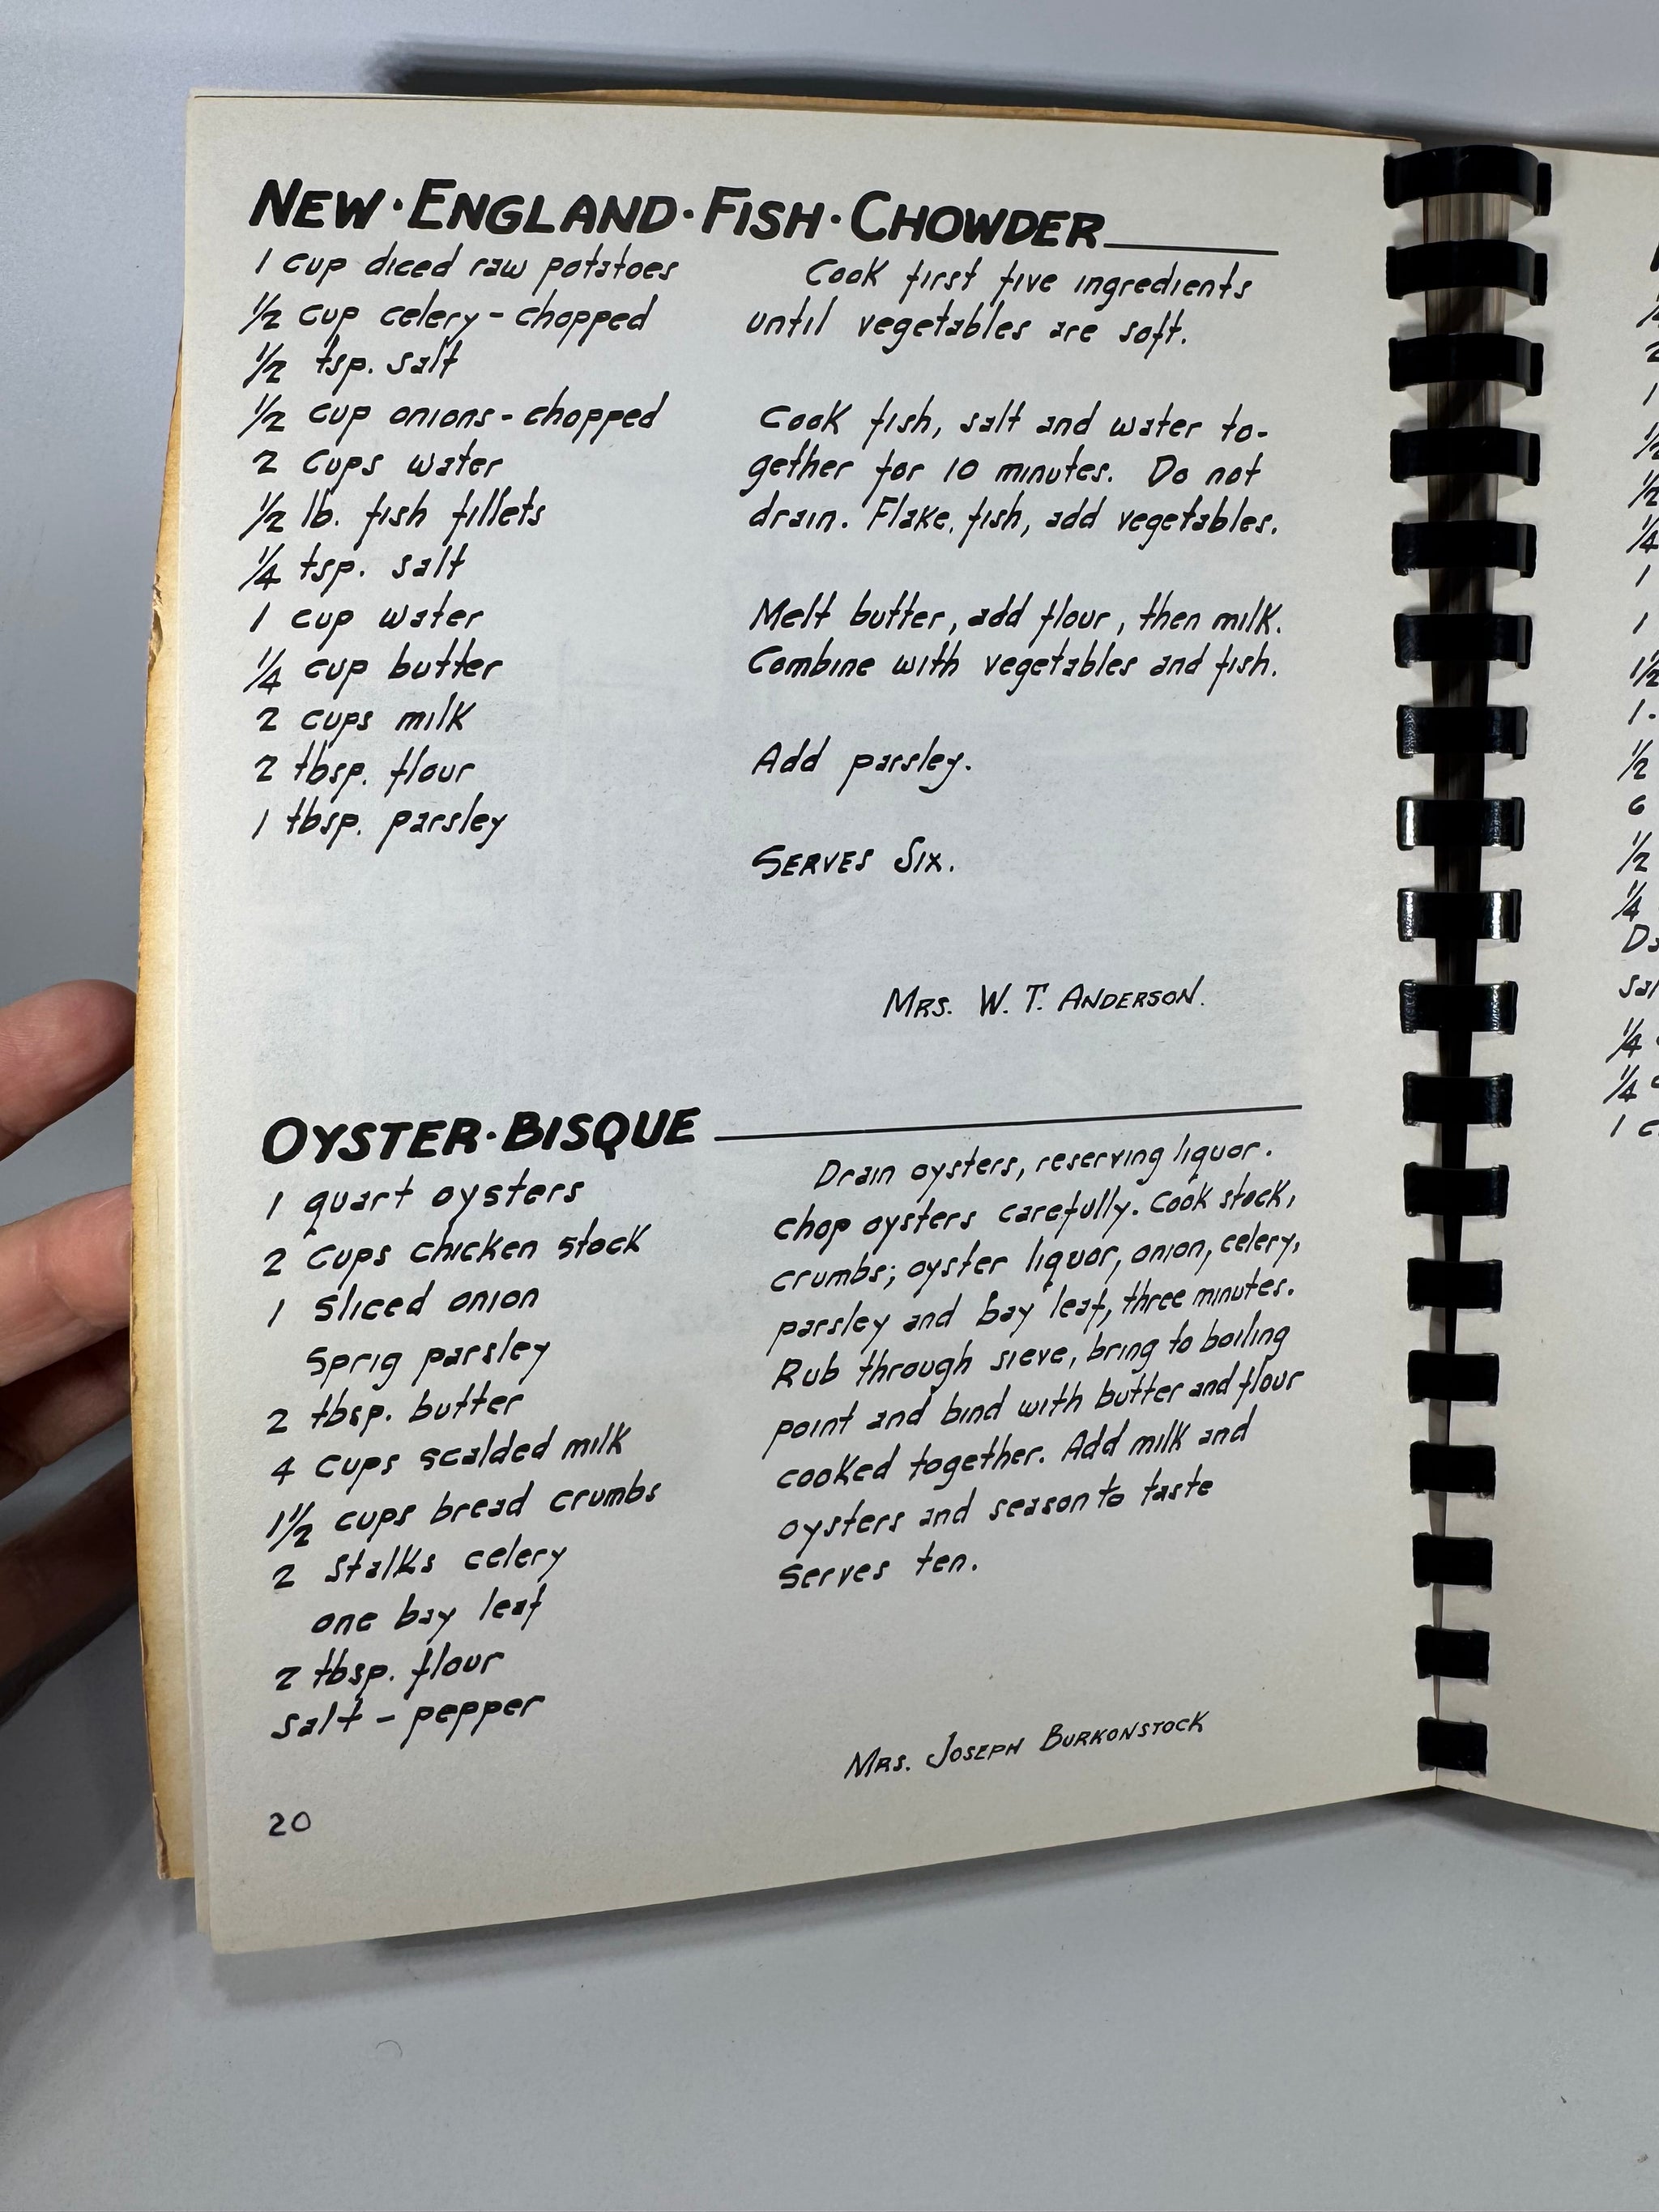 NEW·ENGLAND·FISH·CHOWDER
1 cup diced raw potatoes
1/2 cup celery-chopped
1/2 tsp. salt
1/2 cup onions-chopped
2 cups water
1/2 lb. fish fillets
1/4 tsp. salt
1 cup water
1/4 cup butter
2 cups milk
2 tbsp. flour
1 tbsp. parsley
Cook first five ingredients
until vegetables are soft.
Cook fish, salt and water to-
gether for 10 minutes. Do not
drain. Flake, fish, add vegetables.
Melt butter, add flour, then milk.
Combine with vegetables and fish.
Add parsley.
SERVES SIX.
MRS. W. T. ANDERSON.
OYSTER·BISQUE
1 quart oysters
2 cups chicken stock
1 sliced onion
sprig parsley
2 tbsp. butter
4 cups scalded milk
1 1/2 cups bread crumbs
2 stalks celery
one bay leaf
2 tbsp. flour
salt - pepper
Drain oysters, reserving liquor.
chop oysters carefully. Cook stock,
crumbs; oyster liquor, onion, celery,
parsley and bay leaf, three minutes.
Rub through sieve, bring to boiling
point and bind with butter and flour
cooked together. Add milk and
oysters and season to taste
Serves ten.
MRS. JOSEPH BURKONSTOCK
20
1/2
1/2
1/4
1
1
1 1/2
1/2
6
1/2
1/4
1/4
1/4
1